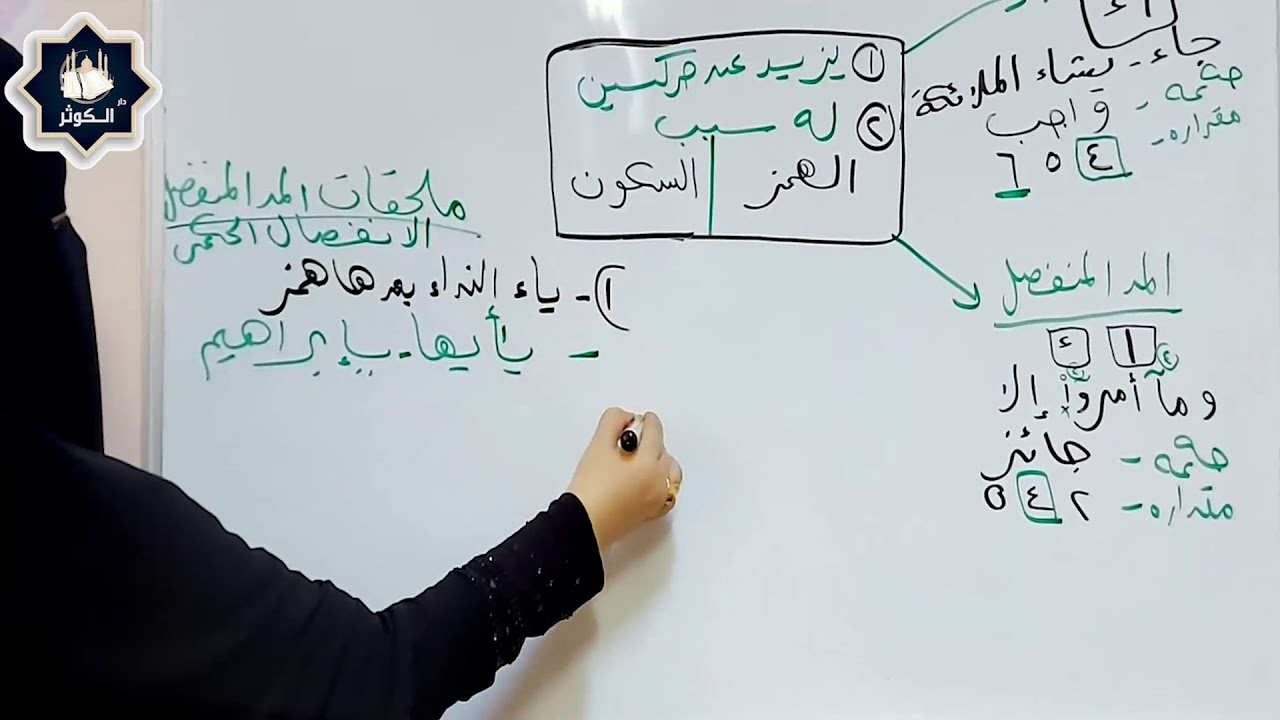 اء
جاء - يشاء الملائكة
حكمه - واجب
مقداره - ٤ ٥ ٦
① يزيد عن حركتين
② له سبب
الهمز السكون
المد المنفصل
ا ء
ومآ أمروٓا إلا
حكمه - جائز
مقداره - ٢ ٤ ٥
ملحقات المد المنفصل
الانفصال الحكمي
١) - ياء النداء بعدها همز
- يأيها - يإبراهيم
دار
الكوثر